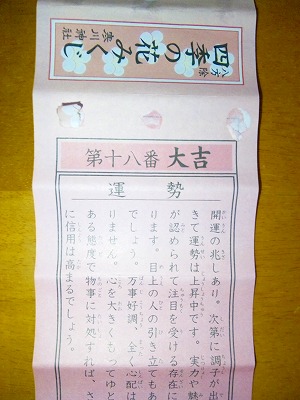 八方除
寒川神社
四季の花みくじ
第十八番 大吉
運勢
開運の兆しあり。次第に調子が出
きて運勢は上昇中です。実力や魅
が認められて注目を受ける存在に
ります。目上の人の引き立てもあ
でしょう。万事好調、全く心配は
りません。心を大きくもってゆと
ある態度で物事に対処すれば、さ
に信用は高まるでしょう。